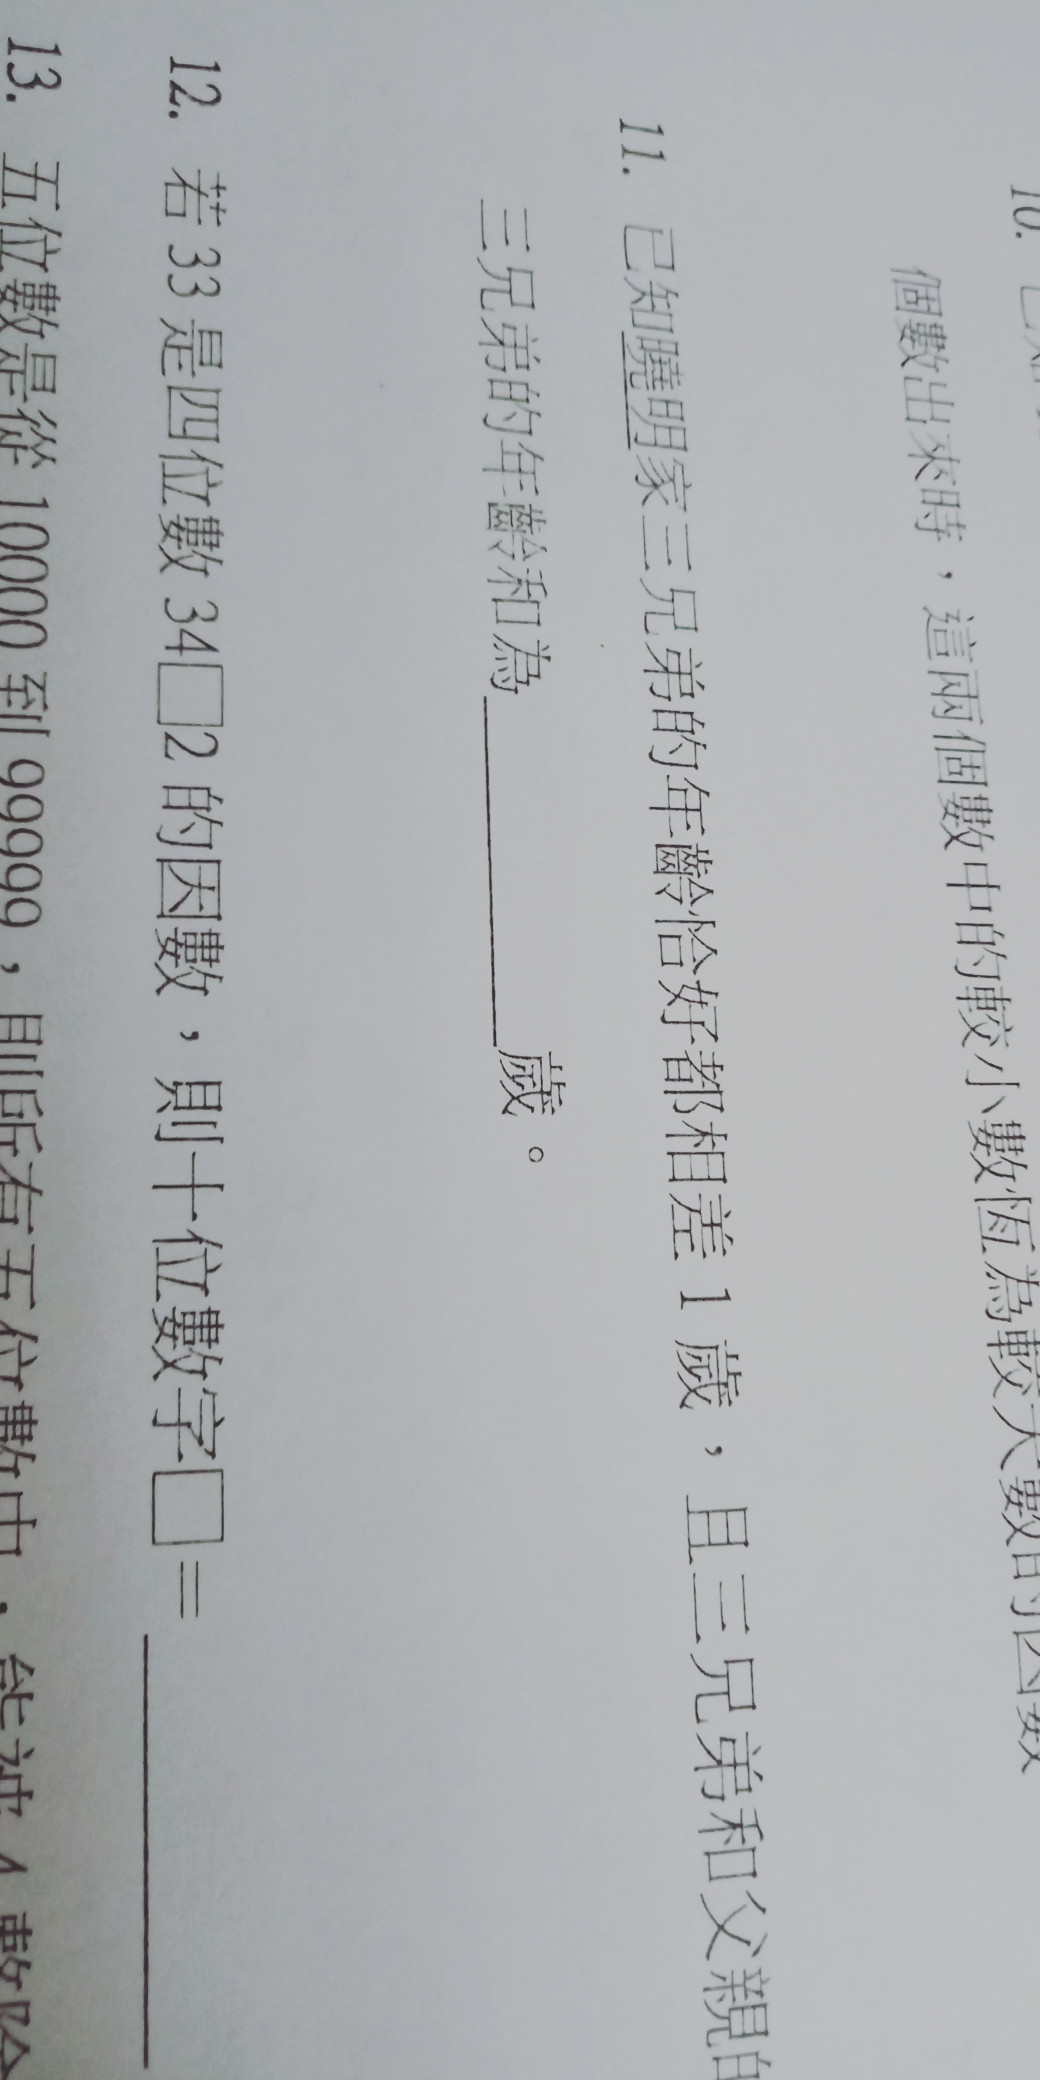 10. 已知
個數出來時，這兩個數中的較小數恆為較大數的因數
11. 已知曉明家三兄弟的年齡恰好都相差 1 歲，且三兄弟和父親的
三兄弟的年齡和為＿＿＿＿＿歲。
12. 若 33 是四位數 34□2 的因數，則十位數字□=＿＿＿＿＿
13. 五位數是從 10000 到 99999，則所有五位數中，能被 4 整除